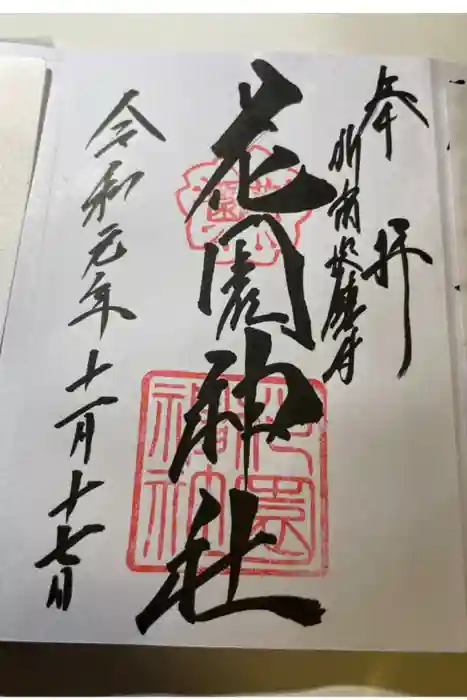 奉拝
新宿総鎮守
花園神社
令和元年十一月十七日
花園
神社